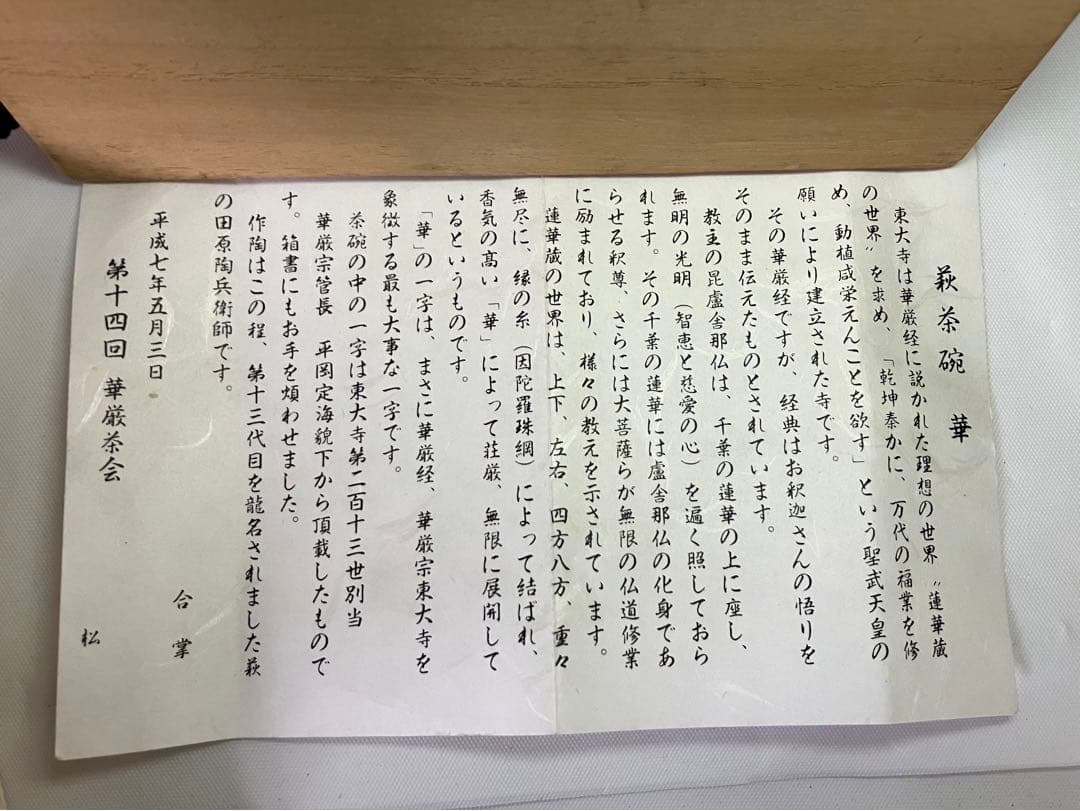 萩茶碗 華
東大寺は華厳経に説かれた理想の世界〝蓮華蔵
の世界〟を求め、「乾坤泰かに、万代の福業を修
め、動植咸栄えんことを欲す」という聖武天皇の
願いにより建立された寺です。
その華厳経ですが、経典はお釈迦さんの悟りを
そのまま伝えたものとされています。
教主の毘盧舎那仏は、千葉の蓮華の上に座し、
無明の光明（智恵と慈愛の心）を遍く照しておら
れます。その千葉の蓮華には盧舎那仏の化身であ
らせる釈尊、さらには大菩薩らが無限の仏道修業
に励まれており、様々の教えを示されています。
蓮華蔵の世界は、上下、左右、四方八方、重々
無尽に、縁の糸（因陀羅珠網）によって結ばれ、
香気の髙い「華」によって荘厳、無限に展開して
いるというものです。
「華」の一字は、まさに華厳経、華厳宗東大寺を
象徴する最も大事な一字です。
茶碗の中の一字は東大寺第二百十三世別当
華厳宗管長 平岡定海貌下から頂載したもので
す。箱書にもお手を煩わせました。
作陶はこの程、第十三代目を龍名されました萩
の田原陶兵衛師です。
合掌
平成七年五月三日
第十四回 華厳茶会
松